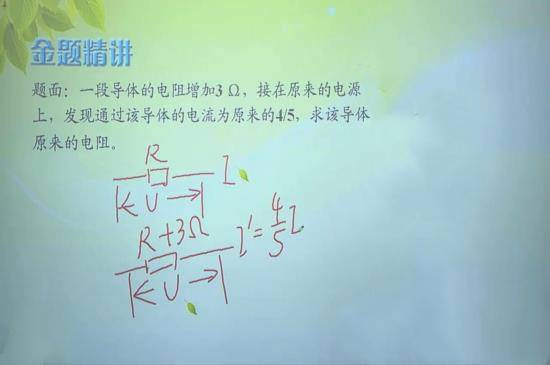 金题精讲
题面：一段导体的电阻增加3 Ω，接在原来的电源
上，发现通过该导体的电流为原来的4/5，求该导体
原来的电阻。
R
U I
R+3Ω
U I'=4/5 I